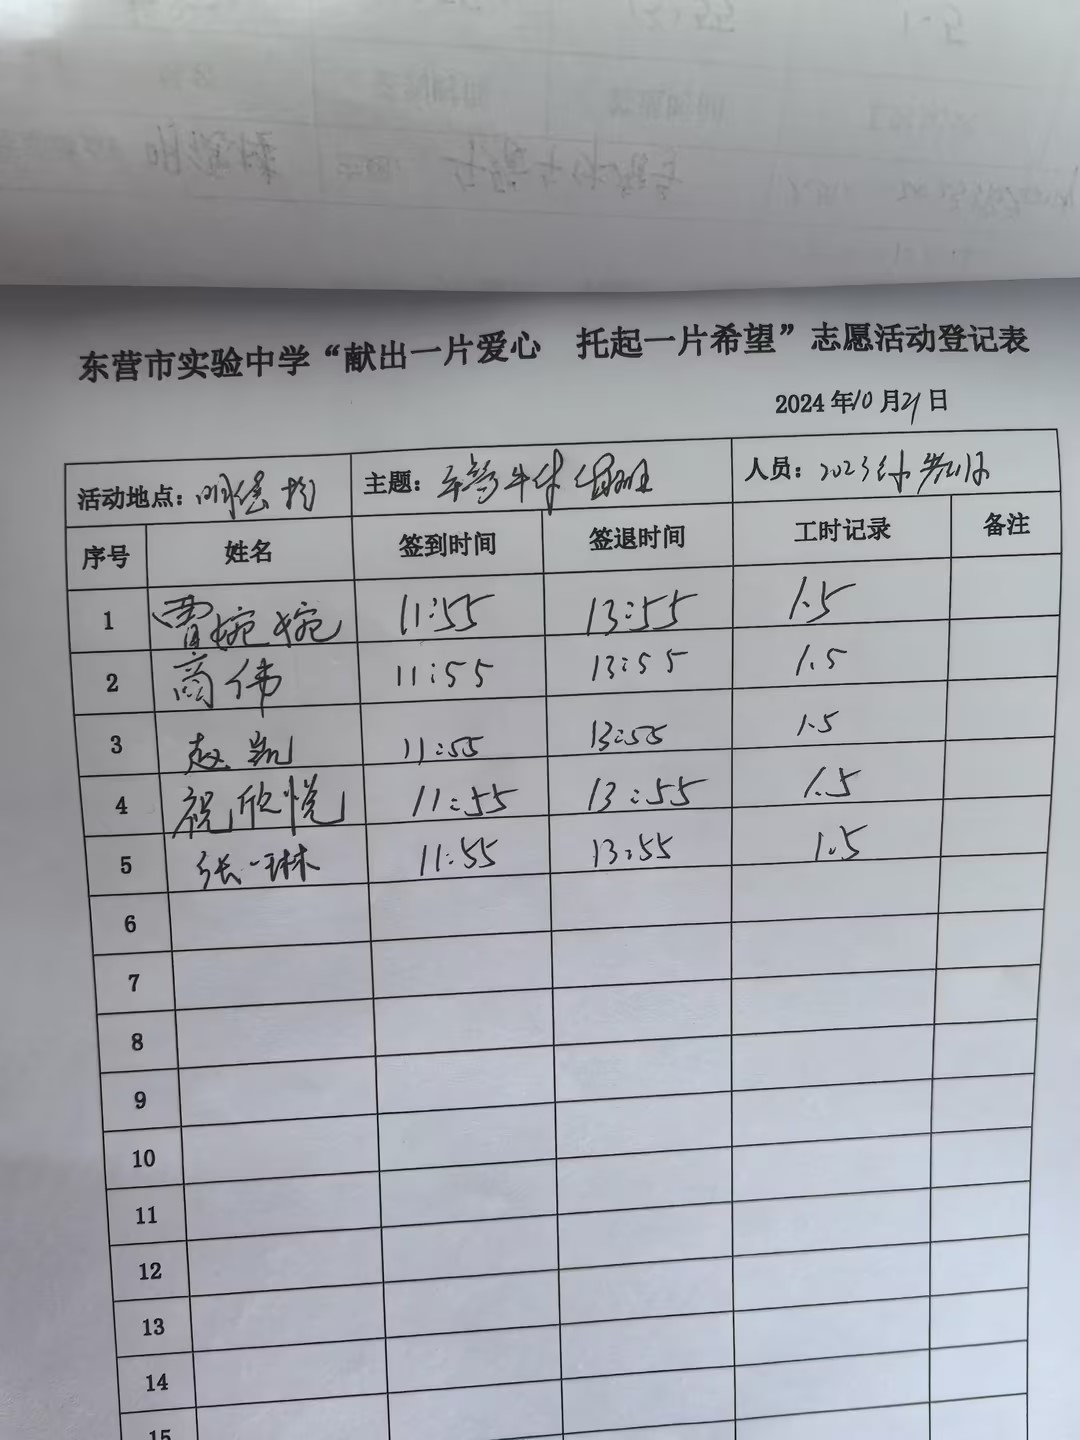 东营市实验中学“献出一片爱心 托起一片希望”志愿活动登记表
2024年10月21日
活动地点：明德楼 主题： 人员：2023级
序号 姓名 签到时间 签退时间 工时记录 备注
1 贾婉婉 11:55 13:55 1.5
2 商伟 11:55 13:55 1.5
3 赵凯 11:55 13:55 1.5
4 祝欣悦 11:55 13:55 1.5
5 张一琳 11:55 13:55 1.5
6
7
8
9
10
11
12
13
14
15